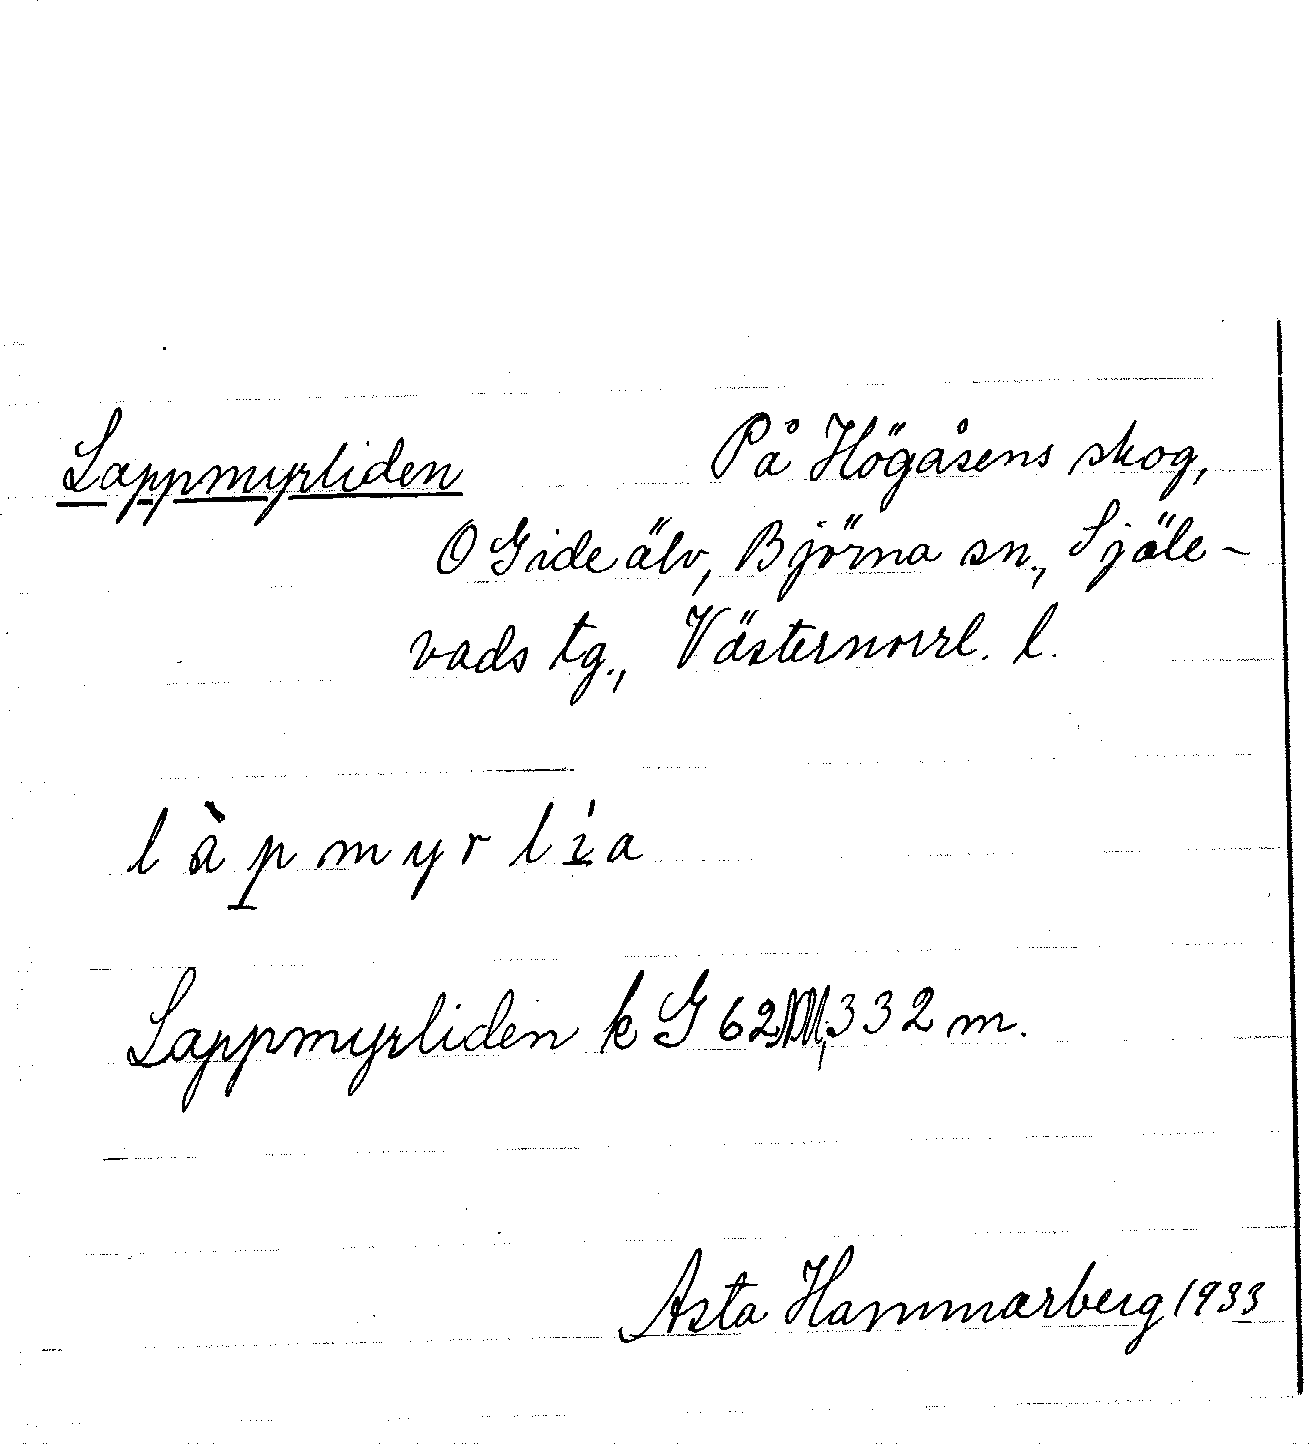 Lappmyrliden På Högåsens skog,
O Gide älv, Björna sn., Själe-
vads tg., Västernorrl. l.
làpmyrlía
Lappmyrliden k G 62 332 m.
Asta Hammarberg 1933